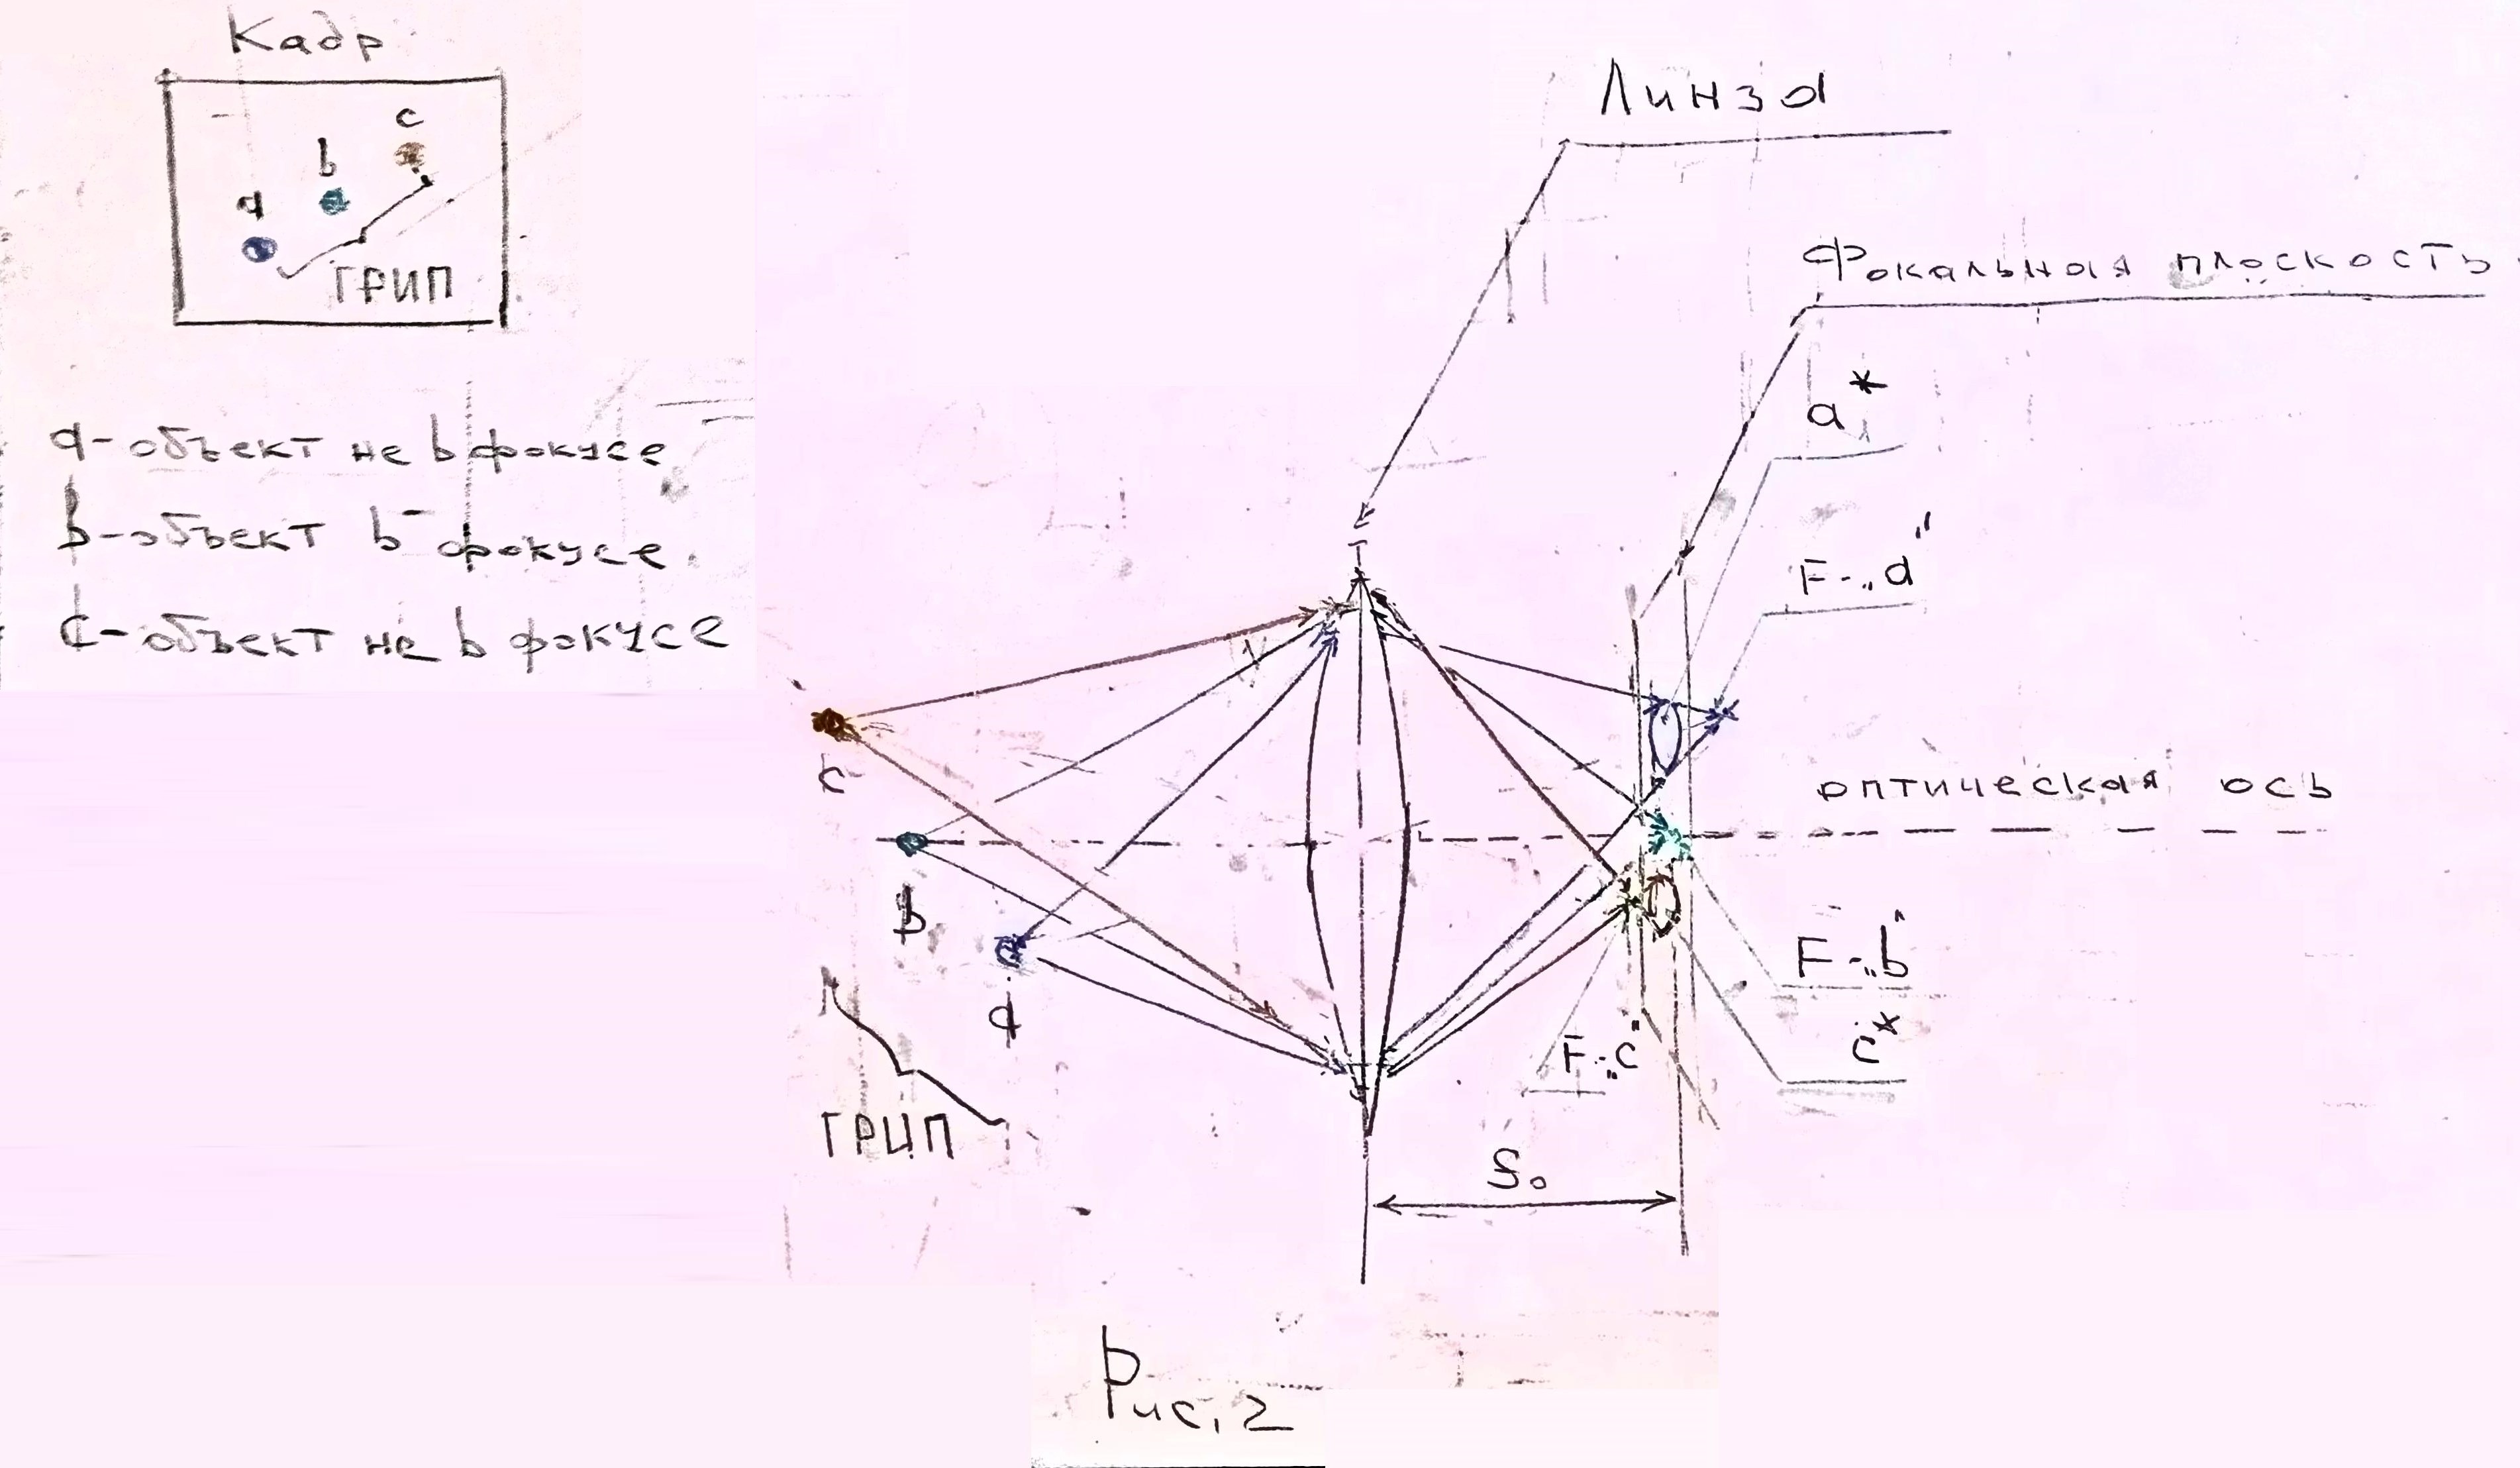 Кадр
c
b
a
ГРИП
a - объект не в фокусе
b - объект в фокусе.
c - объект не в фокусе
Линза
Фокальная плоскость
a*
F-„a"
c
оптическая ось
b
a
F-„b"
c*
F-„c"
ГРИП
S₀
Рис. 2